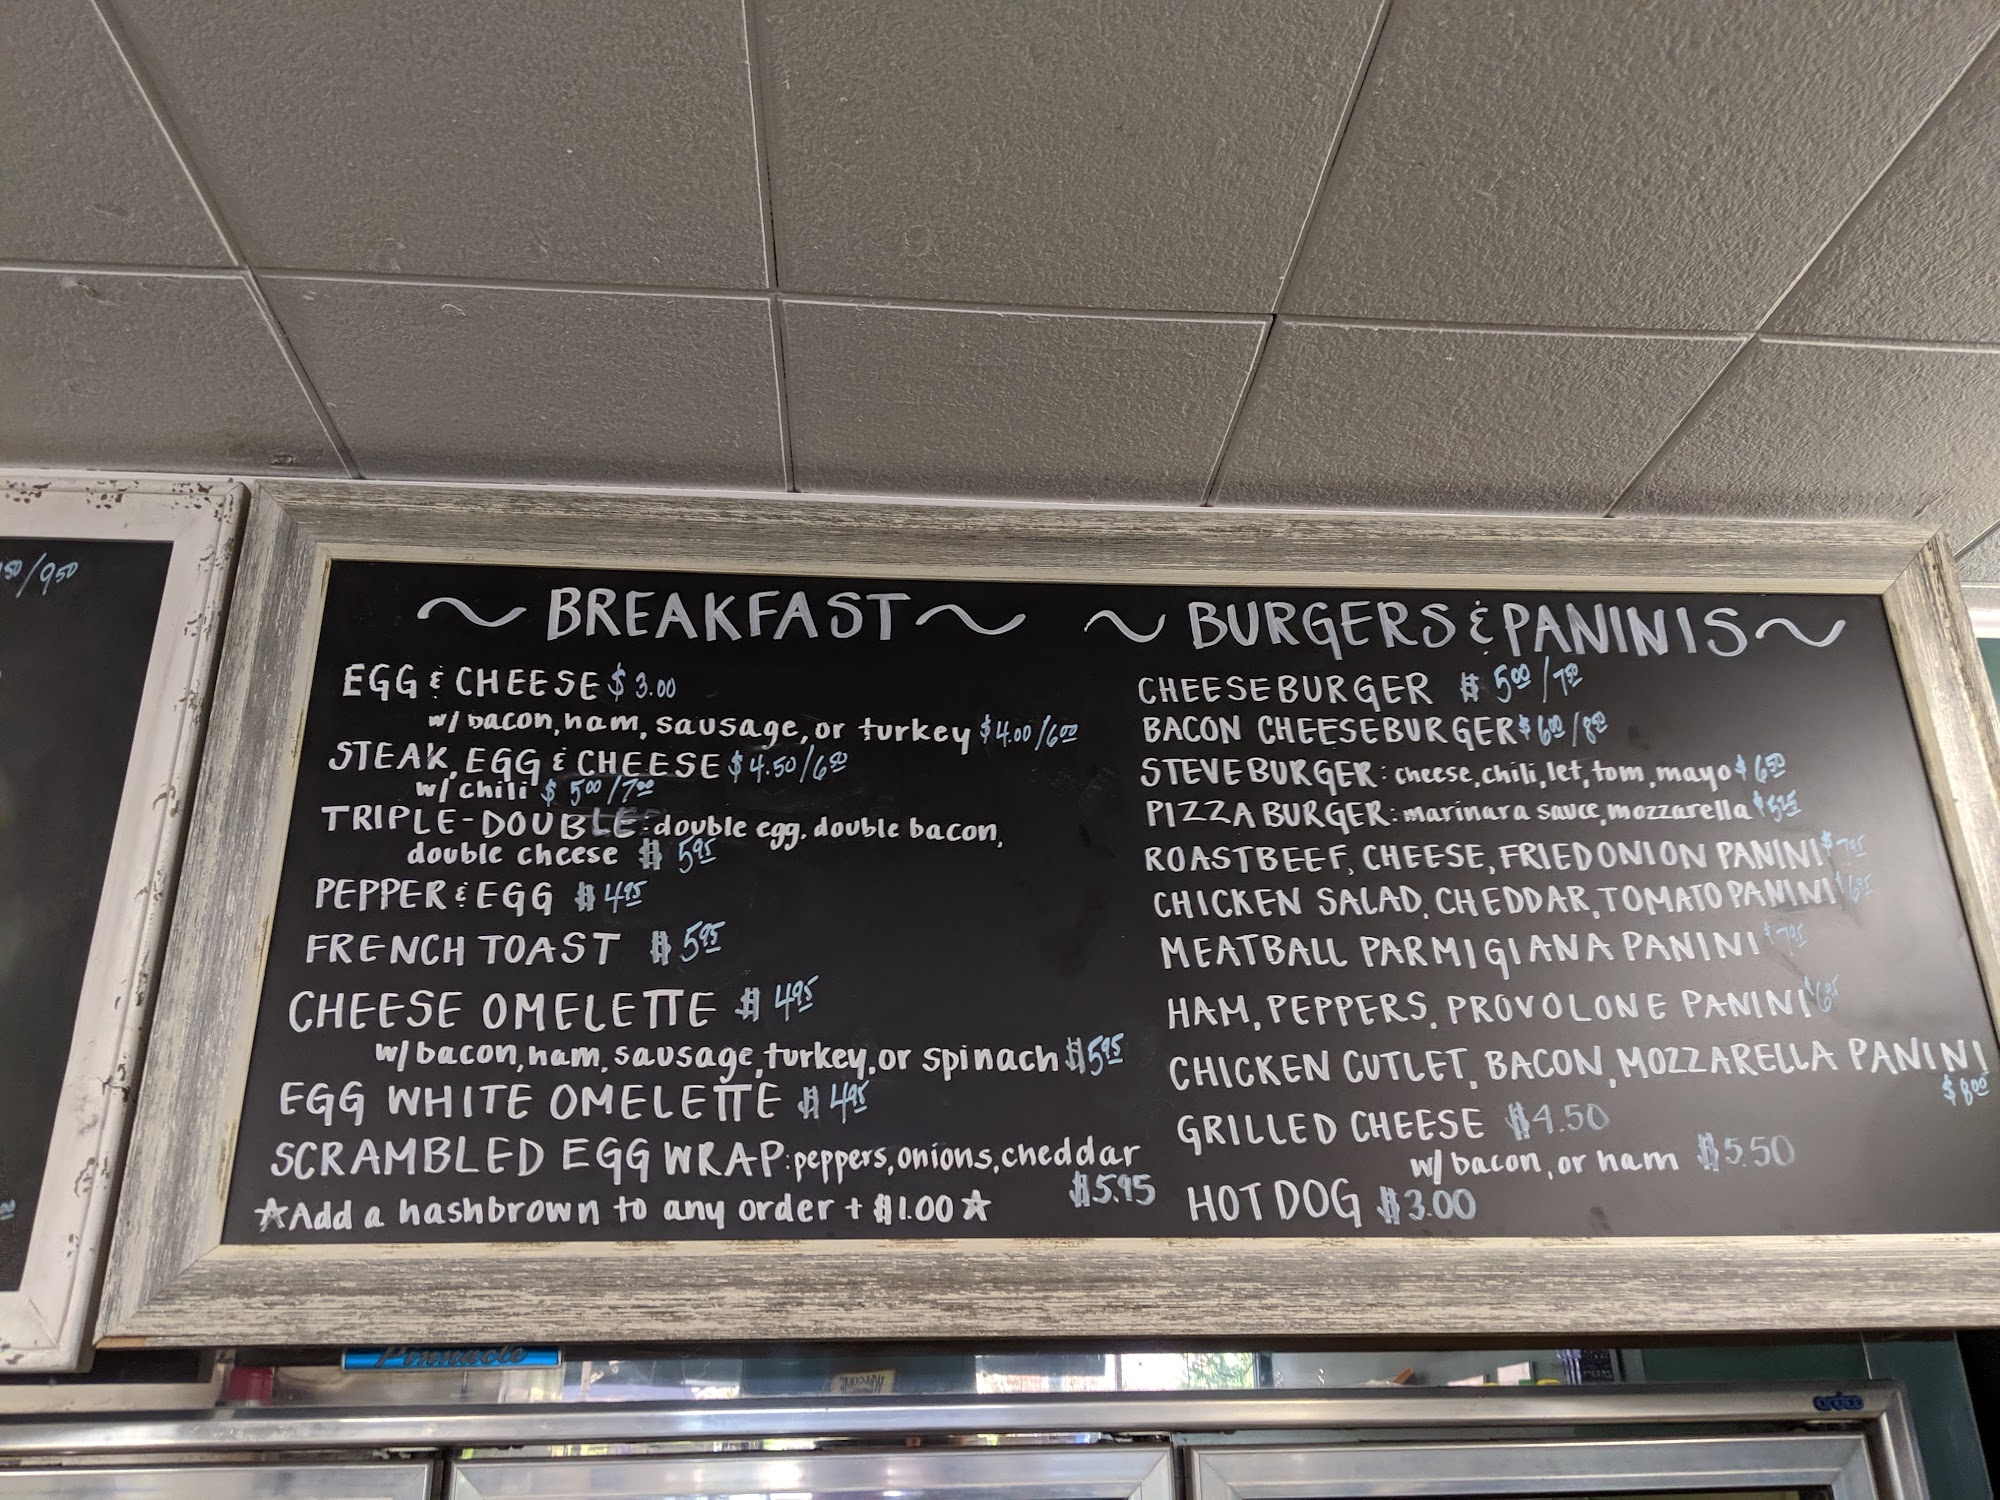 50/9.50
~ BREAKFAST ~
EGG & CHEESE $3.00
w/ bacon, ham, sausage, or turkey $4.00/6.00
STEAK, EGG & CHEESE $4.50/6.50
w/ chili $5.00/7.00
TRIPLE-DOUBLE: double egg, double bacon,
double cheese $5.95
PEPPER & EGG $4.95
FRENCH TOAST $5.95
CHEESE OMELETTE $4.95
w/ bacon, ham, sausage, turkey, or spinach $5.95
EGG WHITE OMELETTE $4.95
SCRAMBLED EGG WRAP: peppers, onions, cheddar
$5.95
☆Add a hashbrown to any order + $1.00☆
~ BURGERS & PANINIS ~
CHEESEBURGER $5.00/7.50
BACON CHEESEBURGER $6.00/8.50
STEVEBURGER: cheese, chili, let, tom, mayo $6.50
PIZZA BURGER: marinara sauce, mozzarella $5.25
ROASTBEEF, CHEESE, FRIED ONION PANINI $7.95
CHICKEN SALAD, CHEDDAR, TOMATO PANINI $6.95
MEATBALL PARMIGIANA PANINI $7.95
HAM, PEPPERS, PROVOLONE PANINI $6.95
CHICKEN CUTLET, BACON, MOZZARELLA PANINI
$8.00
GRILLED CHEESE $4.50
w/ bacon, or ham $5.50
HOT DOG $3.00
Pinnacle